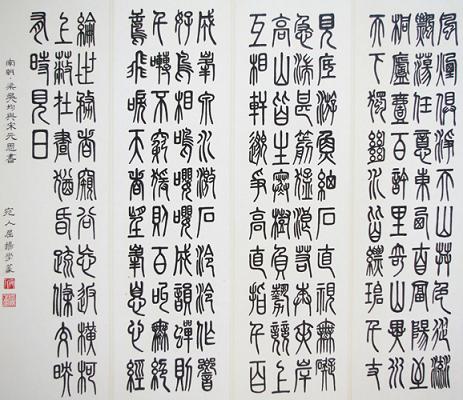 風煙俱淨天山共色從流
飄蕩任意東西自富陽至
桐廬一百許里奇山異水
天下獨絕水皆縹碧千丈
見底游魚細石直視無礙
急湍甚箭猛浪若奔夾岸
高山皆生寒樹負勢競上
互相軒邈爭高直指千百
成峯泉水激石泠泠作響
好鳥相鳴嚶嚶成韻蟬則
千囀不窮猨則百叫無絕
鳶飛唳天者望峯息心經
綸世務者窺谷忘返橫柯
上蔽在晝猶昏疏條交映
有時見日
南朝·梁吳均與宋元思書
宛人屈揚學篆